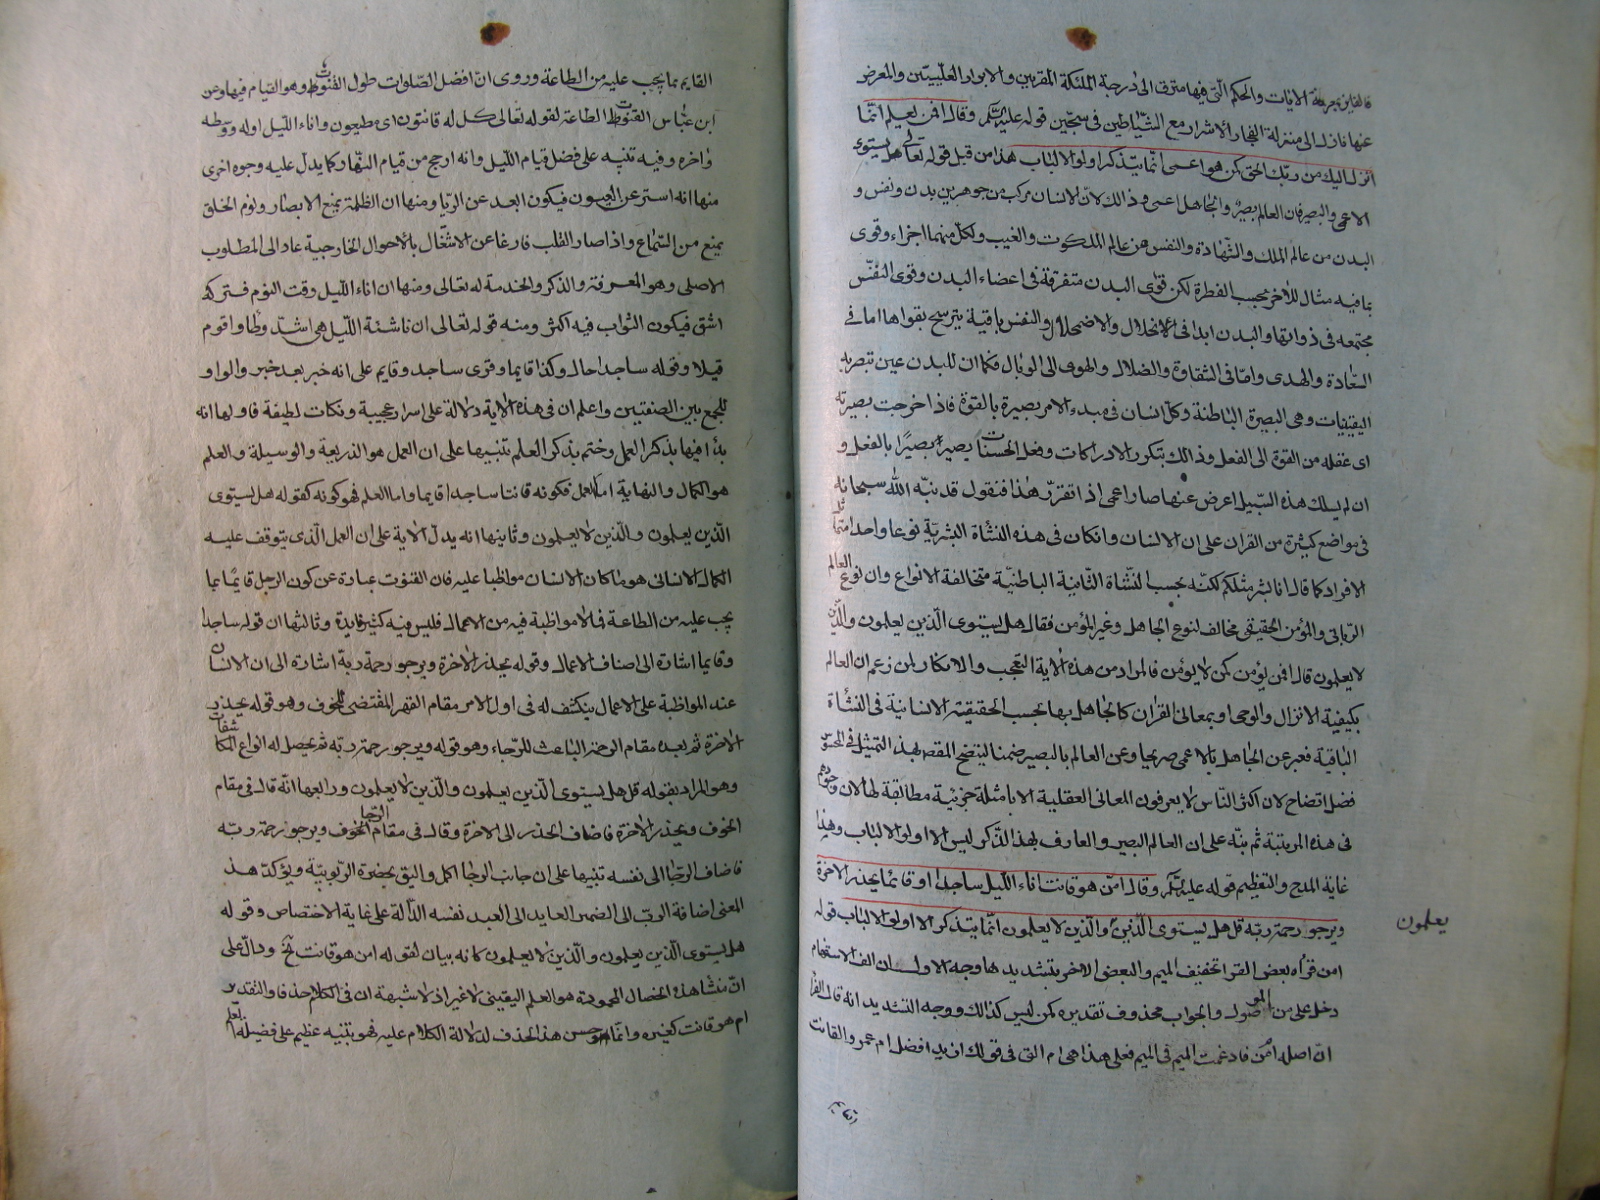 فالفايز بمعرفة الايات والحكم الّتى فيها مترق الى درجة الملئكة المقربين والابرار العلّيّين والمعرض
عنها نازل الى منزلة الفجار والاشرار مع الشّياطين فى سجّين قوله عليه السّلم وقال افمن يعلم انّما
انزل اليك من ربّك الحق كمن هو اعمى انّما يتذكر اولوا الالباب هذا من قبل قوله تعالى هل يستوى
الاعمى والبصير فان العالم بصير والجاهل اعمى وذلك لانّ الانسان مركب من جوهرين بدن ونفس و
البدن من عالم الملك والشّهادة والنفس من عالم الملكوت والغيب ولكل منهما اجزاء وقوى
بما فيه مثال للاخر بحسب الفطرة لكن قوى البدن متفرقة فى اعضاء البدن وقوى النفس
مجتمعه فى ذواتها والبدن ابدا فى الانحلال والاضمحلال والنفس باقية يترسح بقواها اما فى
السّعادة والهدى وامّا فى الشقاوة والضلال والهوى الى الوبال فكما ان للبدن عين تبصر به
اليقينيات وهى البصيرة الباطنة وكل انسان فى مبدء الامر بصيرة بالقوة فاذا خرجت بصيرته
اى عقله من القوة الى الفعل وذلك بتكرر الادراكات وفعل الحسنات يصير بصيرًا بالفعل و
ان لم يسلك هذه السّبيل اعرض عنها صار اعمى اذا تقرّر هذا فنقول قد نبّه اللّه سبحانه
فى مواضع كثيرة من القران على ان الانسان وان كان فى هذه النشأة البشريّة نوعا واحدا متماثل
الافراد كما قال انا بشر مثلكم لكنّه بحسب النّشاة الثّانية الباطنيّة متخالفة الانواع وان نوع العالم
الرّبانى والمؤمن الحقيقى مخالف لنوع الجاهل وغير المؤمن فقال هل يستوى الّذين يعلمون والّذين
لا يعلمون قال افمن يؤمن كمن لا يؤمن فالمراد من هذه الاية التعجب والانكار لمن زعم ان العالم
بكيفية الانزال والوحى وبمعانى القران كالجاهل بها بحسب الحقيقة الانسانية فى النشأة
الباقية فعبر عن الجاهل بالاعمى صريحا وعن العالم بالبصير ضمنا ليتضح المقصد بهذا التمثيل فى المحسوس
فضل اتضاح لان اكثر النّاس لا يعرفون المعانى العقلية الا بامثلة جزئية مطابقة لها لان وجودهم
فى هذه المرتبة ثم نبّه على ان العالم البصير والعارف بهذا الذّكر ليس الا اولوا الالباب وهذا
غاية المدح والتعظيم قوله عليه السّلم وقال امّن هو قانت اناء اللّيل ساجدا او قائما يحذر الاخرة
ويرجوا رحمة ربّه قل هل يستوى الّذين والّذين لا يعلمون انّما يتذكر الا اولوا الالباب قوله
يعلمون
امن قرأه بعض القراء بتخفيف الميم والبعض الاخر بتشديدها وجه الاول ان الف الاستفهام
دخل على من الموصول والجواب محذوف تقديره كمن ليس كذلك ووجه التشديد انه قال الفرا
انّ اصله ام من فادغمت الميم فى الميم فعلى هذا هى ام التى فى قولك ازيد افضل ام عمرو والقانت
القايم بما يجب عليه من الطاعة وروى انّ افضل الصّلوات طول القنوت وهو القيام فيها وعن
ابن عبّاس القنوت الطاعة لقوله تعالى كل له قانتون اى مطيعون واناء اللّيل اوله ووسطه
واخره وفيه تنبيه على فضل قيام اللّيل وانه ارجح من قيام النّهار وكما يدل عليه وجوه اخرى
منها انه استر عن العيون فيكون ابعد عن الرّيا ومنها ان الظلمة يمنع الابصار ونوم الخلق
يمنع من السّماع واذا صار القلب فارغا عن الاشتغال بالاحوال الخارجية عاد الى المطلوب
الاصلى وهو المعرفة والذكر والخدمة له تعالى ومنها ان اناء اللّيل وقت النوم فتركه
اشق فيكون الثّواب فيه اكثر ومنه قوله تعالى ان ناشئة اللّيل هى اشدّ وطأ واقوم
قيلا وقوله ساجدا حال وكذا قايما وقرى ساجد وقايم على انه خبر بعد خبر والواو
للجمع بين الصفتين واعلم ان فى هذه الاية دلالة على اسرار عجيبة ونكات لطيفة فاولها انه
بدأ فيها بذكر العمل وختم بذكر العلم تنبيها على ان العمل هو الذريعة والوسيلة والعلم
هو الكمال والنهاية اما العمل فكونه قانتا ساجدا قايما واما العلم فهو كونه كقوله هل يستوى
الّذين يعلمون والّذين لا يعلمون وثانيها انه يدلّ الاية على ان العمل الّذى يتوقف عليه
الكمال الانسانى هو ما كان الانسان مواظبا عليه فان القنوت عبارة عن كون الرجل قايمًا بما
يجب عليه من الطاعة فما لا مواظبة فيه من الاعمال فليس فيه كثير فايدة وثالثها ان قوله ساجدا
وقايما اشارة الى اصناف الاعمال وقوله يحذر الاخرة ويرجو رحمة ربه اشارة الى ان الانسان
عند المواظبة على الاعمال ينكشف له فى اول الامر مقام القهر المقتضى للخوف وهو قوله يحذر
الاخرة ثم بعده مقام الرحمة الباعث للرّجاء وهو قوله ويرجو رحمة ربّه ثم يحصل له انواع المكاشفات
وهو المراد بقوله قل هل يستوى الّذين يعلمون والّذين لا يعلمون ورابعها انّه قال فى مقام
الخوف ويحذر الاخرة فاضاف الحذر الى الاخرة وقال فى مقام الرّجا ويرجو رحمة ربّه
فاضاف الرجا الى نفسه تنبيها على ان جانب الرجا اكمل واليق بحضرة الرّبوبيّة ويؤكّد هذا
المعنى اضافة الربّ الى الضمير العايد الى العبد نفسه الدّالة على غاية الاختصاص وقوله
هل يستوى الّذين يعلمون والّذين لا يعلمون كانه بيان لقوله امن هو قانت ودالّ على
انّ منشأ هذه الخصال المحمودة هو العلم اليقينى لا غير اذ لا شبهة ان فى الكلام حذفا والتقدير
ام هو قانت كغيره وانّما حسن هذا الحذف لدلالة الكلام عليه فهو تنبيه عظيم على فضيلة العلم